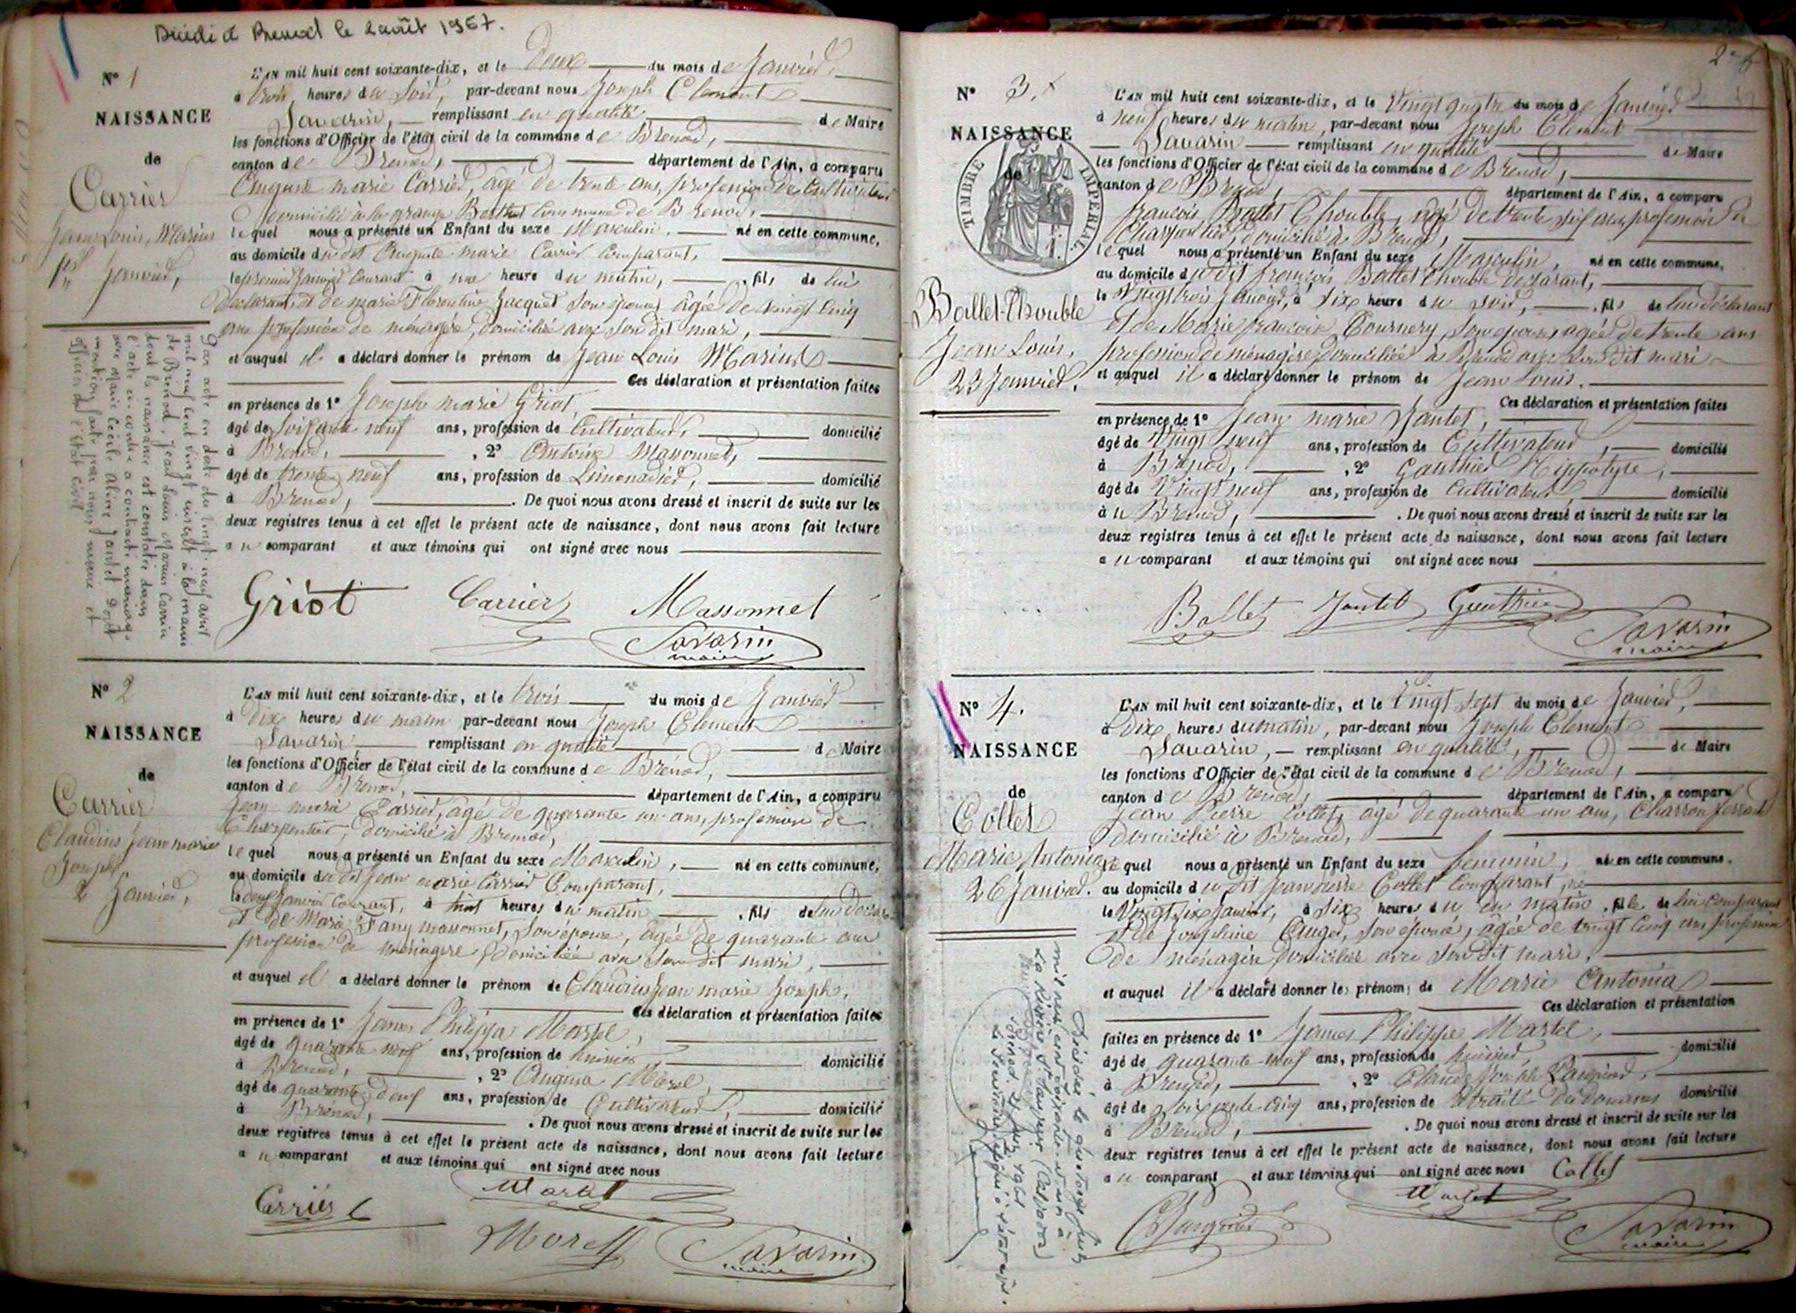 Décédé à Brenod le 2 août 1967.
N° 1
NAISSANCE
de
Carrier
Jean Louis, Marius
1er Janvier,
L'AN mil huit cent soixante-dix, et le deux du mois de Janvier,
à trois heures du soir, par-devant nous Joseph Clement
Savarin, remplissant en qualité de Maire
les fonctions d'Officier de l'état civil de la commune de Brenod,
canton de Brenod, département de l'Ain, a comparu
Auguste marie Carrier, âgé de trente ans, profession de cultivateur
domicilié à la grange Berthet Commune de Brenod,
lequel nous a présenté un Enfant du sexe Masculin, né en cette commune,
au domicile du dit Auguste marie Carrier comparant,
le premier Janvier courant à une heure du matin, fils de lui
déclarant et de marie Florentine Jacquet son épouse âgée de vingt cinq
ans profession de ménagère, domiciliée avec son dit mari,
et auquel il a déclaré donner le prénom de Jean Louis Marius
Ces déclaration et présentation faites
en présence de 1° Joseph marie Griot,
âgé de soixante neuf ans, profession de Cultivateur, domicilié
à Brenod, , 2° Antoine Massonnet,
âgé de trente neuf ans, profession de Limonadier, domicilié
à Brenod, . De quoi nous avons dressé et inscrit de suite sur les
deux registres tenus à cet effet le présent acte de naissance, dont nous avons fait lecture
au comparant et aux témoins qui ont signé avec nous
Griot Carrier Massonnet
Savarin
maire
Par acte en date du vingt neuf avril
mil neuf cent vingt à la mairie
de Brenod, Jean Louis Marius Carrier
dont la naissance est constatée dans
l'acte ci-contre a contracté mariage
avec Marie Cécile Aline Jantet dont
mention faite par nous maire et
officier de l'état civil
N° 2
NAISSANCE
de
Carrier
Claudius Jean marie
Joseph,
2 Janvier,
L'AN mil huit cent soixante-dix, et le trois du mois de Janvier
à dix heures du matin par-devant nous Joseph Clement
Savarin remplissant en qualité de Maire
les fonctions d'Officier de l'état civil de la commune de Brénod,
canton de Brenod, département de l'Ain, a comparu
Jean marie Carrier, âgé de quarante un ans, profession de
Charpentier, domicilié à Brenod,
lequel nous a présenté un Enfant du sexe Masculin, né en cette commune,
au domicile du dit Jean marie Carrier Comparant,
le deux Janvier Courant, à trois heures du matin, fils de lui déclarant
et de Marie Fany massonnet, son épouse, âgée de quarante ans
profession de ménagère domiciliée avec son dit mari,
et auquel il a déclaré donner le prénom de Claudius Jean marie Joseph,
Ces déclaration et présentation faites
en présence de 1° James Philippe Martel,
âgé de quarante neuf ans, profession de huissier domicilié
à Brenod, , 2° Morel,
âgé de quarante deux ans, profession de Cultivateur, domicilié
à Brénod, . De quoi nous avons dressé et inscrit de suite sur les
deux registres tenus à cet effet le présent acte de naissance, dont nous avons fait lecture
au comparant et aux témoins qui ont signé avec nous
Carrier Martel
Morel Savarin
maire
N° 3.
NAISSANCE
de
TIMBRE IMPÉRIAL.
Ballet-Thouble
Jean Louis,
23 Janvier.
L'AN mil huit cent soixante-dix, et le Vingt quatre du mois de Janvier
à neuf heures du matin, par-devant nous Joseph Clement
Savarin remplissant en qualité de Maire
les fonctions d'Officier de l'état civil de la commune de Brenod,
canton de Brenod, département de l'Ain, a comparu
françois Ballet Thouble, âgé de trente six ans, profession de
Charpentier, domicilié à Brenod,
lequel nous a présenté un Enfant du sexe Masculin, né en cette commune,
au domicile du dit françois Ballet Thouble déclarant,
le Vingt trois Janvier, à dix heures du soir, fils de lui déclarant
et de Marie françoise Tournery son épouse, âgée de trente ans
profession de ménagère domiciliée à Brenod avec son dit mari
et auquel il a déclaré donner le prénom de Jean Louis.
Ces déclaration et présentation faites
en présence de 1° Jean marie Jantet,
âgé de Vingt neuf ans, profession de Cultivateur, domicilié
à Brenod, , 2° Gauthier Hippolyte,
âgé de Vingt neuf ans, profession de Cultivateur domicilié
à Brenod, . De quoi nous avons dressé et inscrit de suite sur les
deux registres tenus à cet effet le présent acte de naissance, dont nous avons fait lecture
au comparant et aux témoins qui ont signé avec nous
Ballet Jantet Gauthier
Savarin
maire
N° 4.
NAISSANCE
de
Collet
Marie Antonia
26 Janvier.
L'AN mil huit cent soixante-dix, et le Vingt sept du mois de Janvier,
à Dix heures du matin, par-devant nous Joseph Clement
Savarin, remplissant en qualité, de Maire
les fonctions d'Officier de l'état civil de la commune de Brenod,
canton de Brenod, département de l'Ain, a comparu
Jean Pierre Collet, âgé de quarante un ans, Charron ferrant
domicilié à Brenod,
lequel nous a présenté un Enfant du sexe feminin, né en cette commune.
au domicile du dit Jean Pierre Collet comparant, né
le Vingt six Janvier, à dix heures du matin, fille de lui comparant
et de Joséphine Auger, son épouse, âgée de vingt cinq ans profession
de ménagère domiciliée avec son dit mari.
et auquel il a déclaré donner les prénoms de Marie Antonia
Ces déclaration et présentation
faites en présence de 1° James Philippe Martel,
âgé de quarante neuf ans, profession de huissier, domicilié
à Brenod, , 2° Claude Joseph
âgé de soixante cinq ans, profession de retraité des douanes domicilié
à Brenod, . De quoi nous avons dressé et inscrit de suite sur les
deux registres tenus à cet effet le présent acte de naissance, dont nous avons fait lecture
au comparant et aux témoins qui ont signé avec nous Collet
Martel
Savarin
maire
Décédée le quatorze Juin
mil neuf cent soixante-et-un à
La Rivière St Sauveur (Calvados)